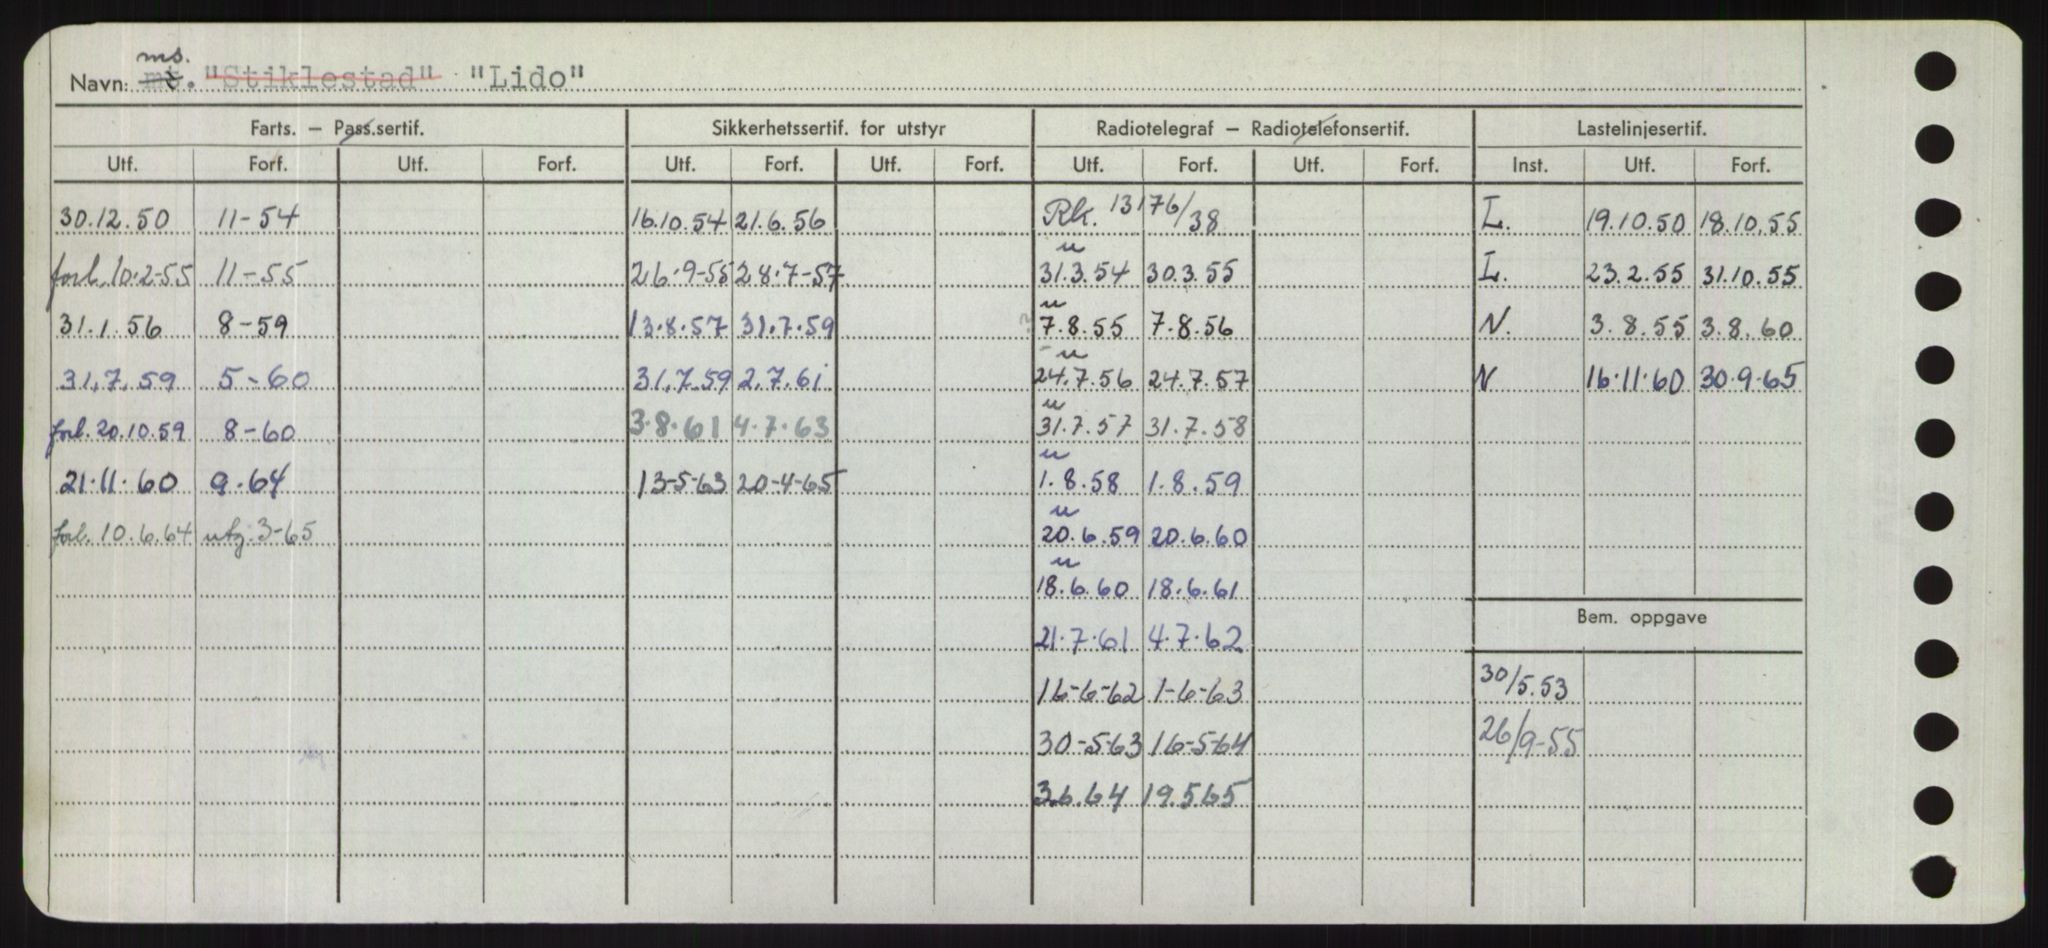 ms.
Navn: mt. "Stiklestad" "Lido"
Farts. — Pass.sertif. Sikkerhetssertif. for utstyr Radiotelegraf — Radiotelefonsertif. Lastelinjesertif.
Utf. Forf. Utf. Forf. Utf. Forf. Utf. Forf. Utf. Forf. Utf. Forf. Inst. Utf. Forf.
30.12.50 11-54 16.10.54 21.6.56 Rk. 13176/38 L. 19.10.50 18.10.55
u
forl. 10.2-55 11-55 26.9-55 28.7-57 31.3.54 30.3.55 L. 23.2.55 31.10.55
u
31.1.56 8-59 13.8.57 31.7.59 ? 7.8.55 7.8.56 N. 3.8.55 3.8.60
u
31.7.59 5-60 31.7.59 2.7.61 24.7.56 24.7.57 N 16.11.60 30.9.65
u
forl. 20.10.59 8-60 3.8.61 4.7.63 31.7.57 31.7.58
u
21.11.60 9.64 13-5-63 20-4-65 1.8.58 1.8.59
u
forl. 10.6.64 utg. 3-65 20.6.59 20.6.60
u
18.6.60 18.6.61
Bem. oppgave
21.7.61 4.7.62
16-6-62 1-6-63 30/5.53
30-5-63 16-5-64 26/9-55
3.6.64 19.5.65